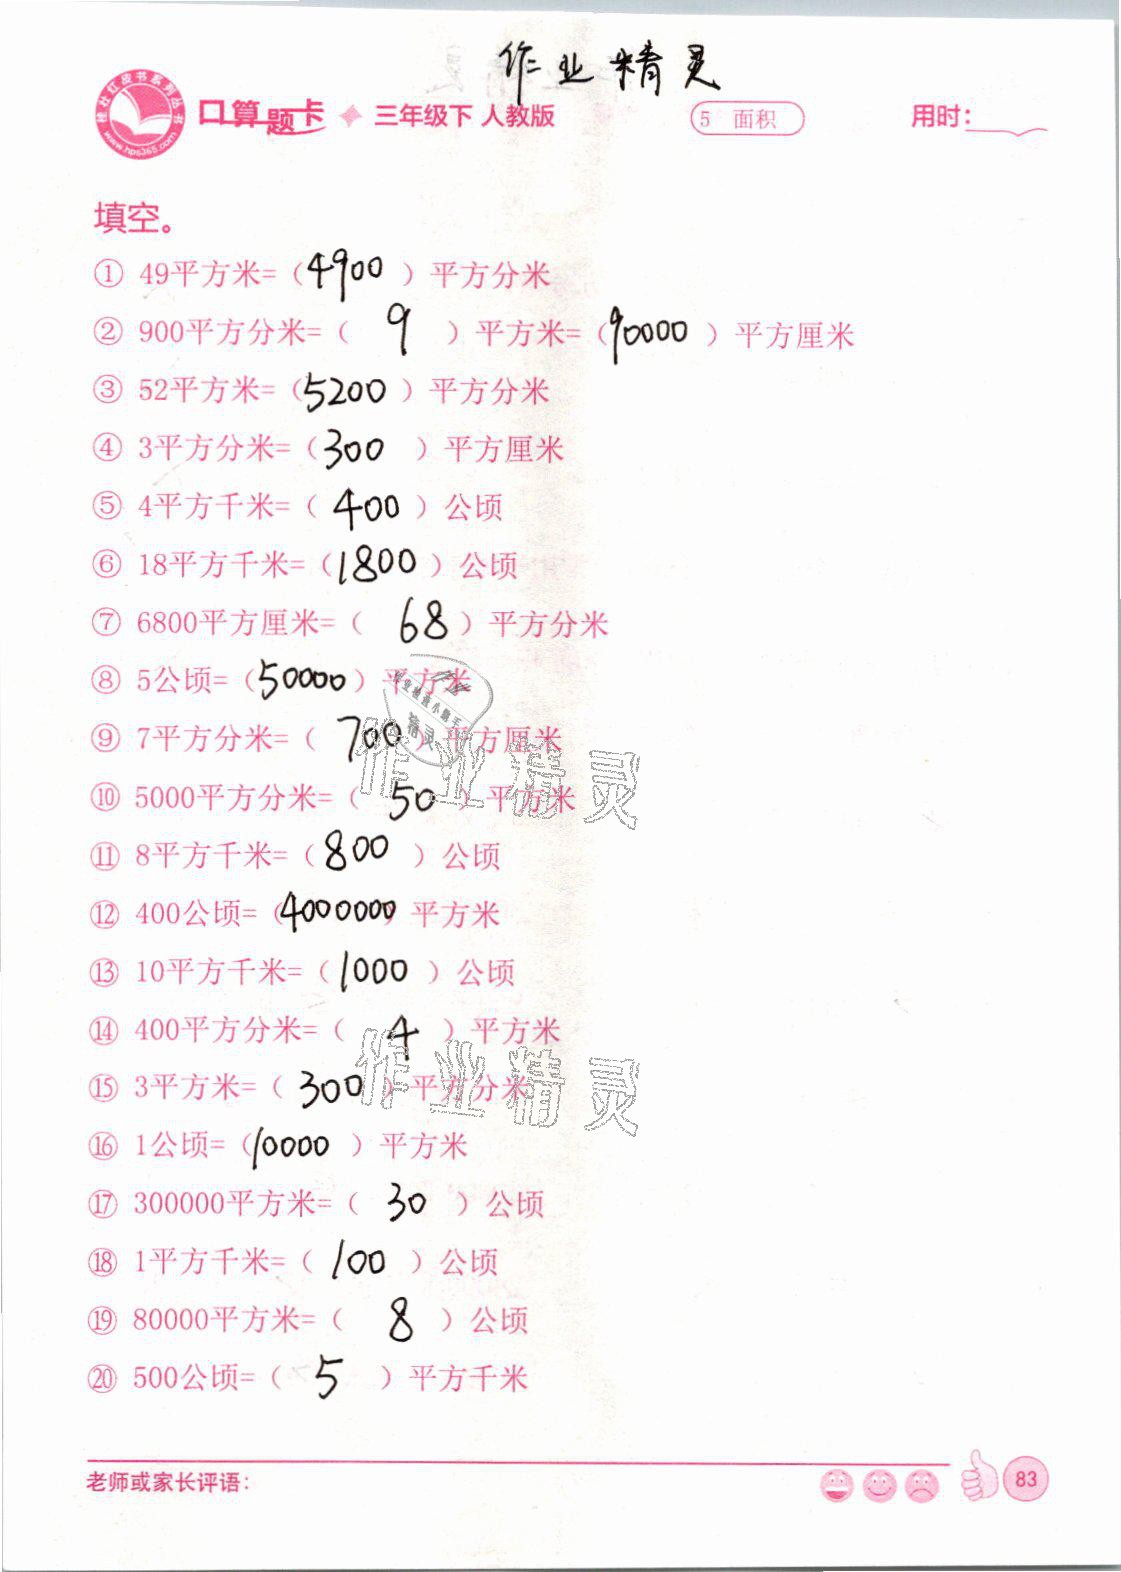 作业精灵
桂壮红皮书系列丛书
www.hps365.com
口算题卡 三年级下 人教版 5 面积 用时:
填空。
① 49平方米=(4900)平方分米
② 900平方分米=(9)平方米=(90000)平方厘米
③ 52平方米=(5200)平方分米
④ 3平方分米=(300)平方厘米
⑤ 4平方千米=(400)公顷
⑥ 18平方千米=(1800)公顷
⑦ 6800平方厘米=(68)平方分米
⑧ 5公顷=(50000)平方米
⑨ 7平方分米=(700)平方厘米
⑩ 5000平方分米=(50)平方米
⑪ 8平方千米=(800)公顷
⑫ 400公顷=(4000000)平方米
⑬ 10平方千米=(1000)公顷
⑭ 400平方分米=(4)平方米
⑮ 3平方米=(300)平方分米
⑯ 1公顷=(10000)平方米
⑰ 300000平方米=(30)公顷
⑱ 1平方千米=(100)公顷
⑲ 80000平方米=(8)公顷
⑳ 500公顷=(5)平方千米
作业精灵
作业精灵
老师或家长评语:
83